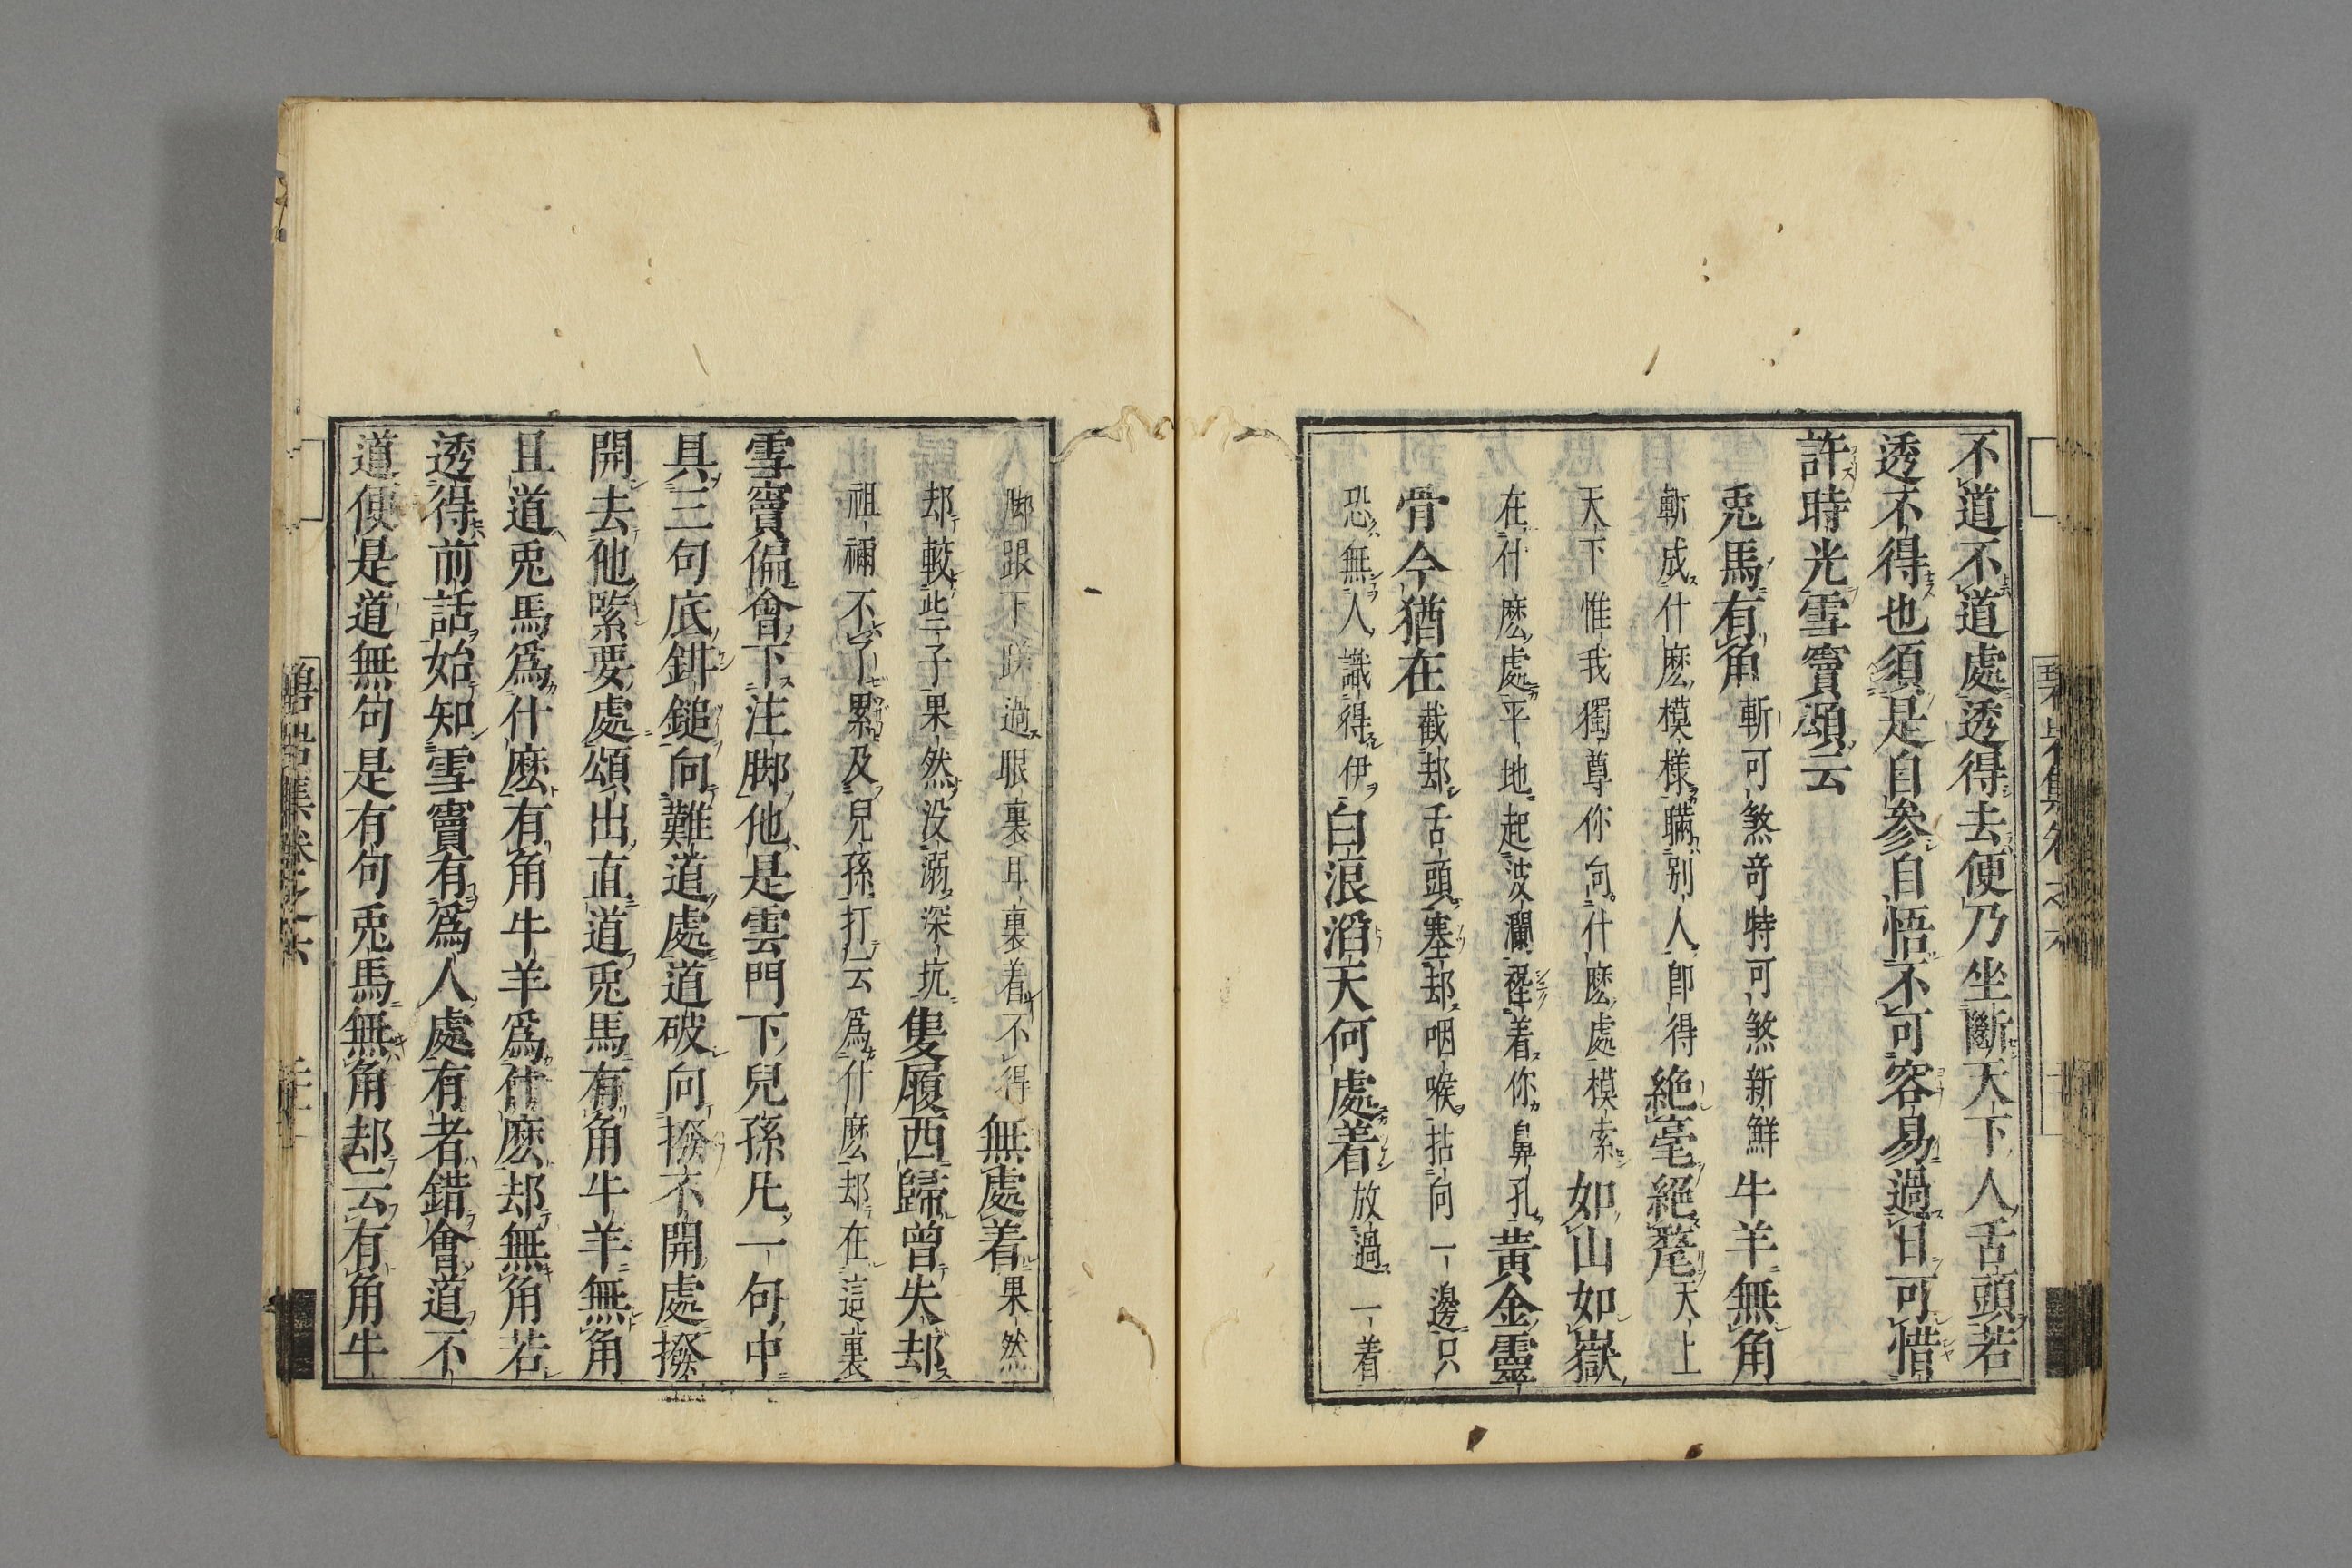 不道不道處透得去便乃坐斷天下人舌頭若
透不得也須是自參自悟不可容易過日可惜
許時光雪竇頌云
兎馬有角斬可煞奇特可煞新鮮牛羊無角
斬成什麽模樣瞞別人即得絶毫絕氂天上
天下惟我獨尊你向什麽處模索如山如嶽
在什麽處平地起波瀾䂐着你鼻孔黃金靈
骨今猶在截却舌頭塞却咽喉拈向一邊只
恐無人識得伊白浪滔天何處着放過一着
脚跟下蹉過眼裏耳裏着不得無處着果然
却較些子果然没溺深坑隻履西歸曾失却
祖禰不了累及兒孫打云爲什麽却在這裏
雪竇偏會下注脚他是雲門下兒孫凡一句中
具三句底鉗鎚向難道處道破向撥不開處撥
開去他緊要處頌出直道兎馬有角牛羊無角
且道兎馬爲什麽有角牛羊爲什麽却無角若
透得前話始知雪竇有爲人處有者錯會道不
道便是道無句是有句兎馬無角却云有角牛
碧岩集卷之六